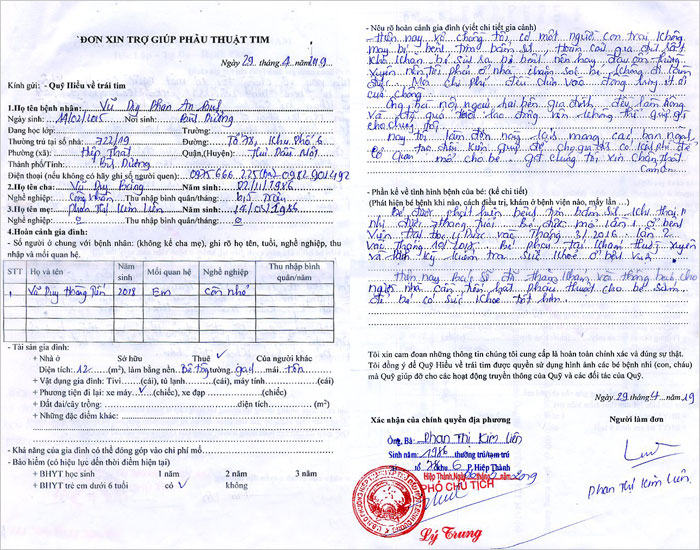 ĐƠN XIN TRỢ GIÚP PHẪU THUẬT TIM
Ngày 29 tháng 4 năm 2019
Kính gửi: - Quỹ Hiểu về trái tim
1.Họ tên bệnh nhân: Vũ Duy Phan An
Ngày sinh: 14/02/2015 Nơi sinh: Bình Dương
Đang học lớp: Trường:
Thường trú tại số nhà: 722/19 Đường: Tổ 78, Khu Phố 6
Phường (xã): Hiệp Thành Quận,(Huyện): Thủ Dầu Một
Thành phố/Tỉnh: Bình Dương
Điện thoại (nếu không có hãy ghi số người quen): 0975 666 225 0982 901 492
2.Họ tên cha: Vũ Duy Năm sinh: 02/11/1986
Nghề nghiệp: Công nhân Thu nhập bình quân/tháng: triệu
3.Họ tên mẹ: Phan Thị Kim Liên Năm sinh: 1986
Nghề nghiệp: 0 Thu nhập bình quân/tháng: 0
4.Hoàn cảnh gia đình:
- Số người ở chung với bệnh nhân: (không kể cha mẹ), ghi rõ họ tên, tuổi, nghề nghiệp, thu
nhập và mối quan hệ.
STT Họ và tên Năm sinh Mối quan hệ Nghề nghiệp Thu nhập bình quân/năm
1 Vũ Duy Hoàng 2018 Em Còn nhỏ
- Tài sản gia đình:
+ Nhà ở Sở hữu Thuê ✓ Của người khác
Diện tích: 12 (m2), làm bằng nền. Bê tông tường. gạch mái. tôn
+ Vật dụng gia đình: Tivi.....(cái), tủ lạnh.....(cái), máy vi tính.....(cái)
+ Phương tiện đi lại: xe máy ✓ (chiếc), xe đạp (chiếc)
+ Đất đai/cây trồng: diện tích (m2)
+ Những đặc điểm khác:
- Khả năng của gia đình có thể đóng góp vào chi phí mổ
- Bảo hiểm (có hiệu lực đến thời điểm hiện tại)
+ BHYT học sinh 1 năm 2 năm 3 năm
+ BHYT trẻ em dưới 6 tuổi có ✓ không
- Nêu rõ hoàn cảnh gia đình (viết chi tiết gia cảnh)
Hiện nay vợ chồng tôi có một người con trai không
may bị bệnh tim bẩm sinh, hoàn cảnh gia đình rất
khó khăn bé sinh ra bị bệnh nên hay đau ốm thường
xuyên nên tôi phải ở nhà chăm sóc bé không đi làm
được. Mọi chi phí đều dựa vào đồng lương ít ỏi
của chồng.
Ông, bà nội ngoại hai bên gia đình đều làm nông
và đã quá tuổi lao động nên không thể giúp gì
cho chúng tôi.
nay tôi làm đơn này, rất mong các ban ngành
tạo điều kiện giúp đỡ cho gia đình tôi có kinh phí để
mổ cho bé. chúng tôi xin chân thành
cảm ơn
- Phần kể về tình hình bệnh của bé: (kể chi tiết)
(Phát hiện bé bệnh khi nào, cách điều trị, khám ở bệnh viện nào, mấy lần ...)
Bé được phát hiện bệnh tim bẩm sinh khi thai
nhi được 7 tháng tuổi. Bé được mổ lần 1 ở bệnh
viện Đại học Y Dược vào tháng 3/2016 lần 2
vào tháng 10/2017. Bé phải tái khám thường xuyên
và định kỳ kiểm tra sức khỏe ở bệnh viện.
Hiện nay Bác sĩ đã thăm khám và thông báo cho
người nhà cần tiến hành phẫu thuật cho bé sớm
để bé có sức khỏe tốt hơn.
Tôi xin cam đoan những thông tin chúng tôi cung cấp là hoàn toàn chính xác và đúng sự thật.
Tôi đồng ý để Quỹ Hiểu về trái tim được quyền sử dụng hình ảnh các bé bệnh nhi (con, cháu)
mà Quỹ giúp đỡ cho các hoạt động truyền thông của Quỹ và các đối tác của Quỹ.
Ngày 29 tháng 4 năm 2019
Xác nhận của chính quyền địa phương Người làm đơn
Ông, Bà: Phan Thị Kim Liên
Sinh năm: 1986 thường trú/tạm trú
tổ 78 khu 6 P. Hiệp Thành
Hiệp Thành, Ngày tháng năm 2019
PHÓ CHỦ TỊCH
Lý Trung
Phan Thị Kim Liên